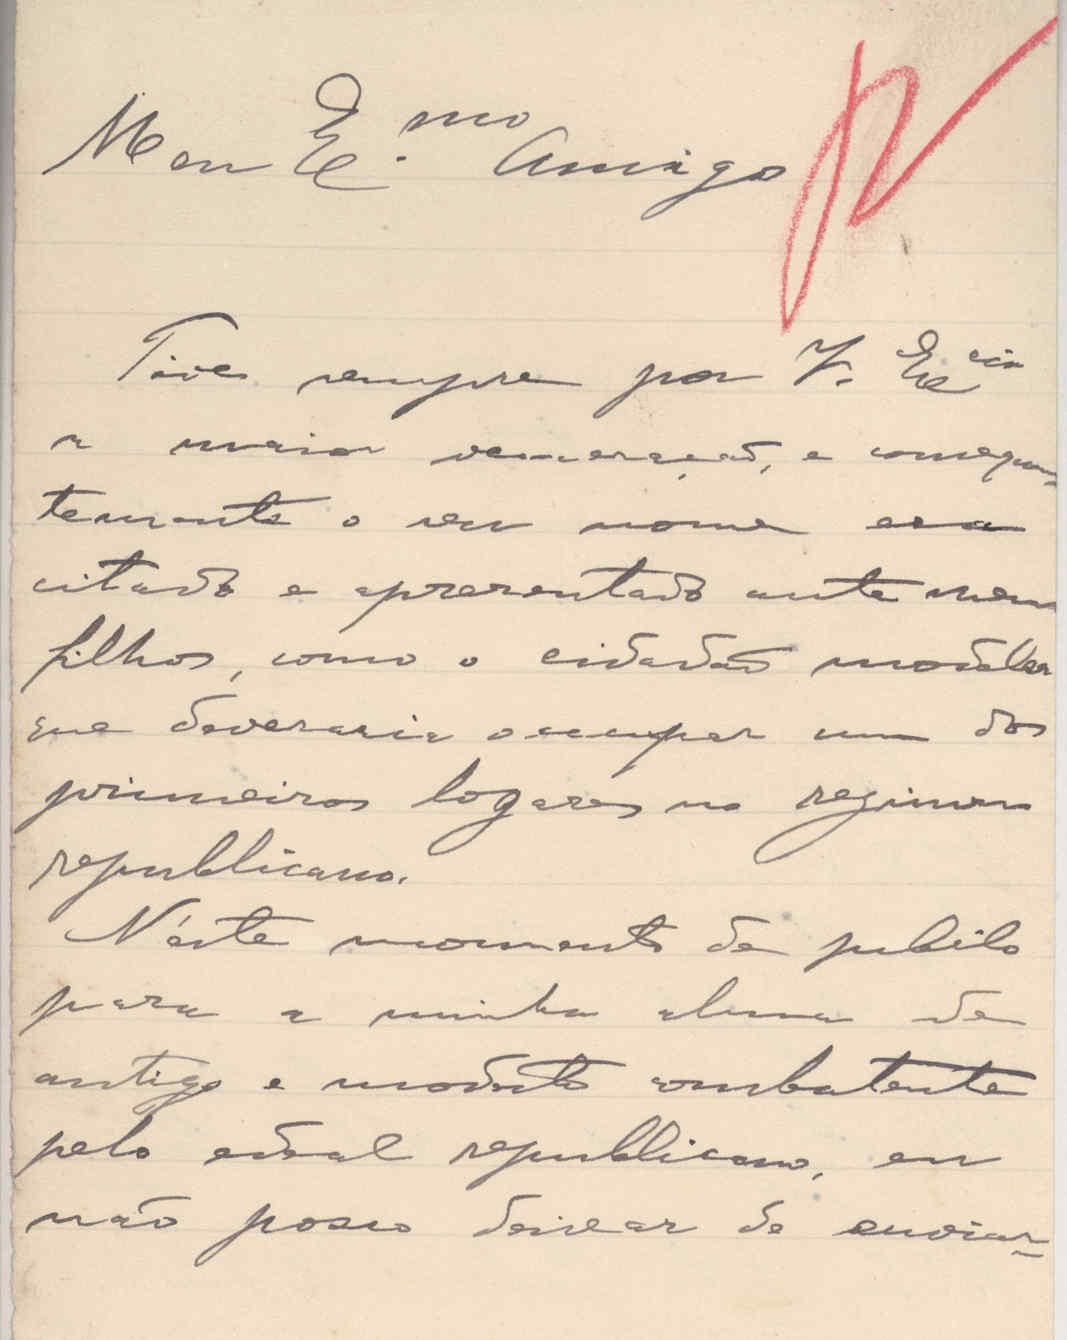 Meu Ex.mo Amigo
Tive sempre por V. Excia
a maior veneração, e consequen-
temente o seu nome era
citado e apresentado ante meus
filhos, como o cidadão modelar
que deveraria occupar um dos
primeiros logares no regimen
republicano.
N'éste momento de jubilo
para a minha alma de
antigo e modesto combatente
pelo edeal republicano, eu
não posso deixar de enviar-